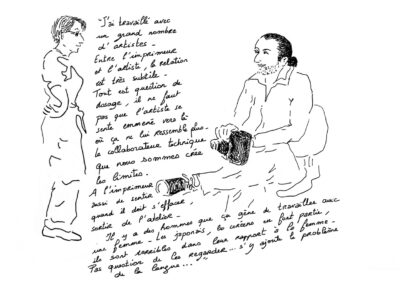 "J'ai travaillé avec
un grand nombre
d'artistes -
Entre l'imprimeur
et l'artiste, la relation
est très subtile -
Tout est question de
dosage, il ne faut
pas que l'artiste se
sente emmené vers là
où ça ne lui ressemble plus -
le collaborateur technique
que nous sommes crée
les limites.
A l'imprimeur
aussi de sentir
quand il doit s'effacer,
sortir de l'atelier -
Il y a des hommes que ça gène de travailler avec
une femme - Les japonais, les coréens en font partie,
ils sont terribles dans leur rapport à la femme -
Pas question de les regarder... s'y ajoute le problème
de la langue..."